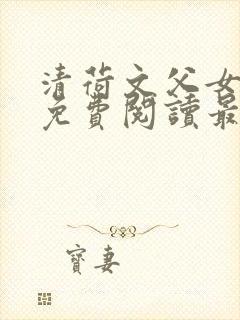 清荷文父女
免費閱讀最
寶妻